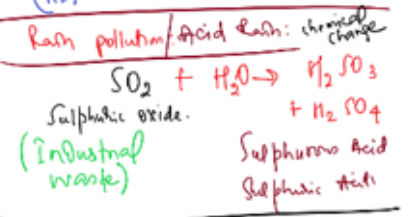 Rain pollution/Acid Rain: chemical change
SO₂ + H₂O → H₂SO₃
+ H₂SO₄
Sulphuric oxide.
(Industrial waste)
Sulphurous Acid
Sulphuric Acid